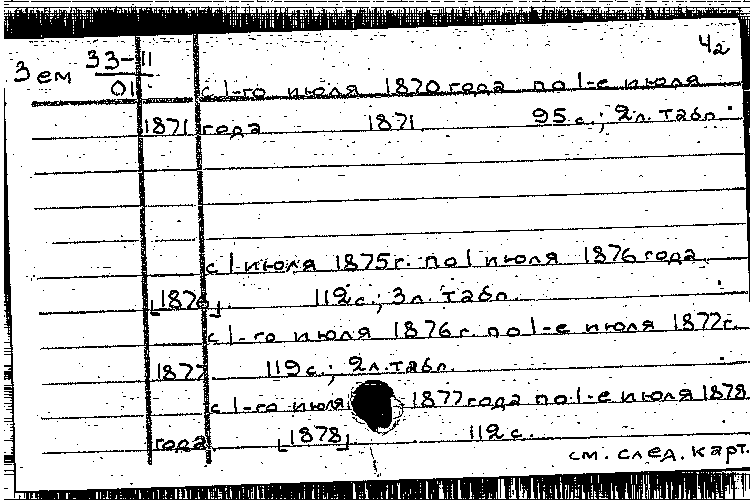 Зем 33-II Ч2
01
с 1-го июля 1870 года по 1-е июля
1871 года 1871. 95 с.; 2л. табл.
с 1 июля 1875г. по 1 июля 1876 года.
[1876] 112с.; 3л. табл.
с 1-го июля 1876г. по 1-е июля 1877г.
1877 119с.; 2л. табл.
с 1-го июля 1877 года по 1-е июля 1878
года [1878] 112с.
см. след. карт.